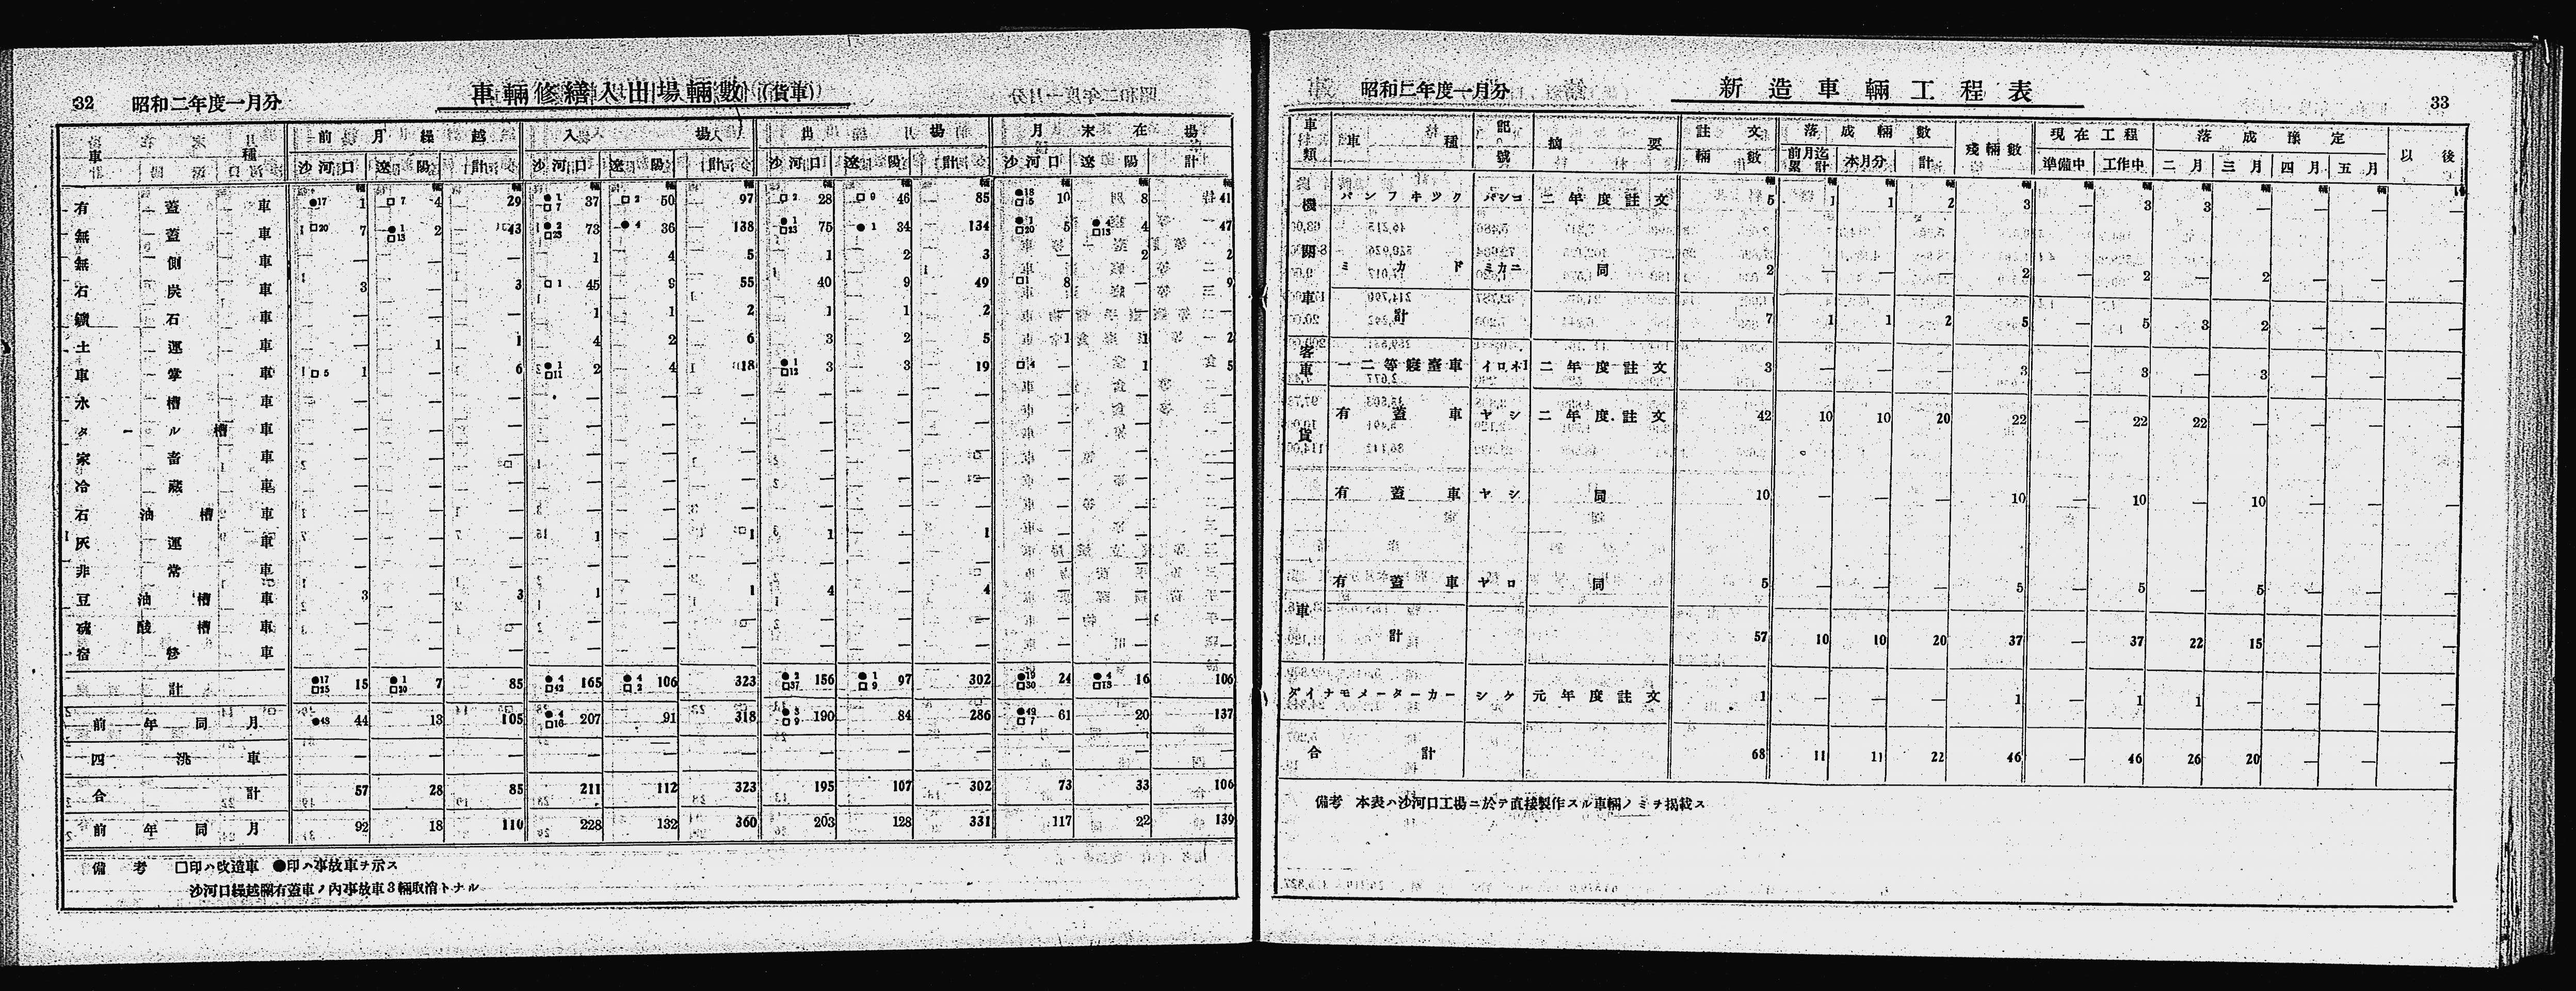 32 昭和二年度一月分 車輛修繕入出場輛數 (貨車)
車種 前月繰越 入場 出場 月末在場
沙河口 遼陽 計 沙河口 遼陽 計 沙河口 遼陽 計 沙河口 遼陽 計
輛 輛 輛 輛 輛 輛 輛 輛 輛 輛 輛 輛
有蓋車 ●17 1 □7 4 29 ●1 □7 37 □2 50 97 □2 28 □9 46 85 ●18 □5 10 8 41
無蓋車 □20 7 ●1 □13 2 43 ●2 □23 73 ●4 36 138 ●1 □23 75 ●1 34 134 ●1 □20 5 ●4 □13 4 47
無側車 — — — 1 4 5 1 2 3 2 2
石炭車 3 — 3 □1 45 9 55 40 9 49 □1 8 9
鑛石車 — — — 1 1 2 1 1 2
土運車 — 1 1 4 2 6 3 2 5 1 1 2
車掌車 □5 1 — 6 ●1 □11 2 4 18 ●1 □12 3 3 19 □4 — 1 5
水槽車 — — — — — — — — — — — —
タール槽車 — — — — — — — — — — — —
家畜車 — — — — — — — — — — — —
冷藏車 — — — — — — — — — — — —
石油槽車 — — — — — — — — — — — —
灰運車 — — — 1 — 1 1 — 1 — — —
非常車 — — — — — — — — — — — —
豆油槽車 3 — 3 1 — 1 4 — 4 — — —
硫酸槽車 — — — — — — — — — — — —
宿營車 — — — — — — — — — — — —
計 ●17 □25 15 ●1 □20 7 85 ●4 □42 165 ●4 □2 106 323 ●2 □37 156 ●1 □9 97 302 ●19 □30 24 ●4 □13 16 106
前年同月 ●48 44 13 105 ●4 □16 207 91 318 ●3 □9 190 84 286 ●49 □7 61 20 137
四洮車 — — — — — — — — — — — —
合計 57 28 85 211 112 323 195 107 302 73 33 106
前年同月 92 18 110 228 132 360 203 128 331 117 22 139
備考 □印ハ改造車 ●印ハ事故車ヲ示ス
沙河口繰越欄有蓋車ノ內事故車3輛取消トナル
昭和二年度一月分 新造車輛工程表 33
車類 車種 記號 摘要 註文輛數 落成輛數 殘輛數 現在工程 落成豫定 以後
前月迄累計 本月分 計 準備中 工作中 二月 三月 四月 五月
輛 輛 輛 輛 輛 輛 輛 輛 輛 輛 輛 輛
機關車 パシフヰツク パシコ 二年度註文 5 1 1 2 3 — 3 3 — — — —
ミカド ミカニ 同 2 — — — 2 — 2 — 2 — — —
計 7 1 1 2 5 — 5 3 2 — — —
客車 一二等寢臺車 イロネ1 二年度註文 3 — — — 3 — 3 — 3 — — —
貨車 有蓋車 ヤシ 二年度註文 42 10 10 20 22 — 22 22 — — — —
有蓋車 ヤシ 同 10 — — — 10 — 10 — 10 — — —
有蓋車 ヤロ 同 5 — — — 5 — 5 — 5 — — —
計 57 10 10 20 37 — 37 22 15 — — —
ダイナモメーターカー シケ 元年度註文 1 — — — 1 — 1 1 — — — —
合計 68 11 11 22 46 — 46 26 20 — — —
備考 本表ハ沙河口工場ニ於テ直接製作スル車輛ノミヲ揭載ス